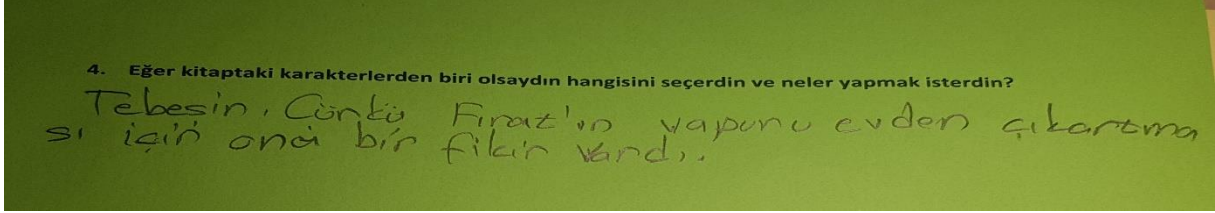 4. Eğer kitaptaki karakterlerden biri olsaydın hangisini seçerdin ve neler yapmak isterdin?
Tebeşin. Çünkü Fırat'ın vapuru evden çıkartma
sı için ona bir fikir vardı.